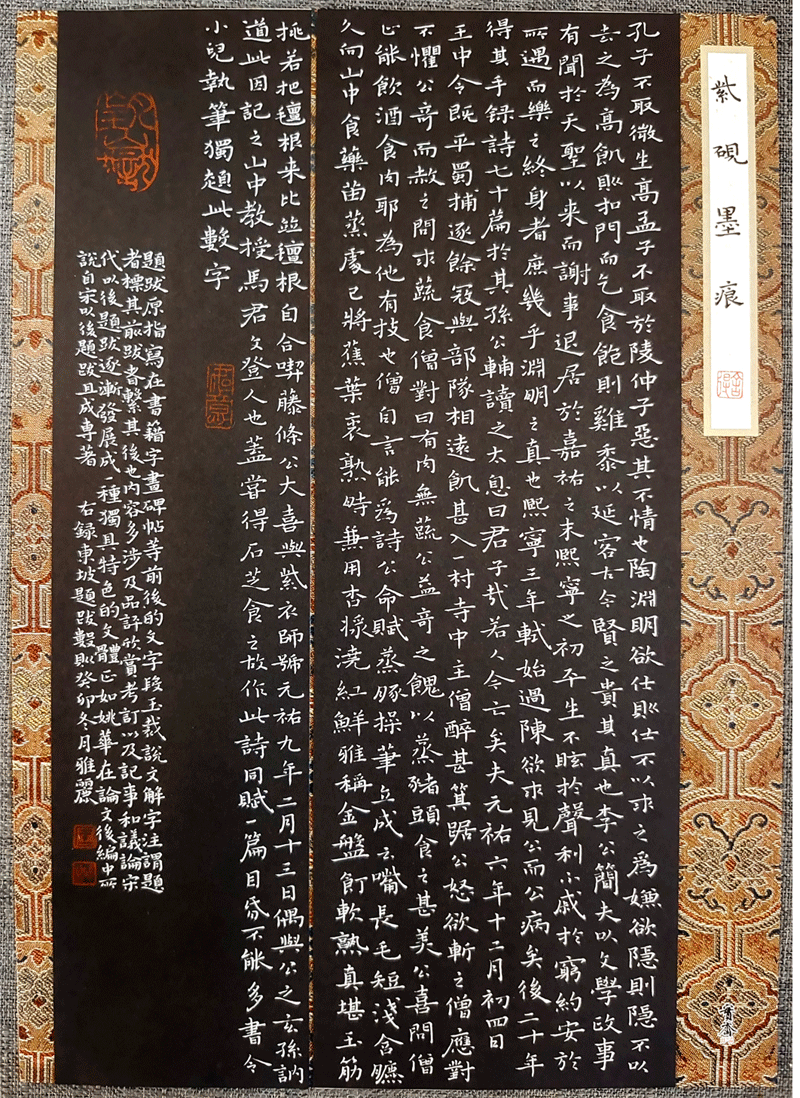 紫硯墨痕
孔子不取微生高孟子不取於陵仲子惡其不情也陶淵明欲仕則仕不以求之為嫌欲隱則隱不以
去之為高飢則扣門而乞食飽則雞黍以延客古今賢之貴其真也李公簡夫以文學政事
有聞於天聖以來而謝事退居於嘉祐之末熙寧之初平生不眩於聲利不戚於窮約安於
所遇而樂之終身者庶幾乎淵明之真也熙寧三年軾始過陳欲求見公而公病矣後二十年
得其手録詩七十篇於其孫公輔讀之太息曰君子哉若人今亡矣夫元祐六年十二月初四日
王中令既平蜀捕逐餘寇與部隊相遠飢甚入一村寺中主僧醉甚箕踞公怒欲斬之僧應對
不懼公奇而赦之問求蔬食僧對曰有肉無蔬公益奇之餽以蒸豬頭食之甚美公喜問僧
止能飲酒食肉耶為他有技也僧自言能為詩公命賦蒸豚操筆立成云嘴長毛短淺含臕
久向山中食藥苗蒸處已將蕉葉裹熟時兼用杏漿澆紅鮮雅稱金盤飣軟熟真堪玉筯
挑若把氊根來比並氊根自合喫藤條公大喜與紫衣師號元祐九年二月十三日偶與公之玄孫訥
道此因記之山中教授馬君文登人也蓋嘗得石芝食之故作此詩同賦一篇目昏不能多書令
小兒執筆獨題此數字
題跋原指寫在書籍字畫碑帖等前後的文字段玉裁說文解字注謂題
者標其前跋者繫其後也内容多涉及品評欣賞考訂以及記事和議論宋
代以後題跋逐漸發展成一種獨具特色的文體正如姚華在論文後編中所
說自宋以後題跋且成專著 右録東坡題跋數則癸卯冬月雅麗